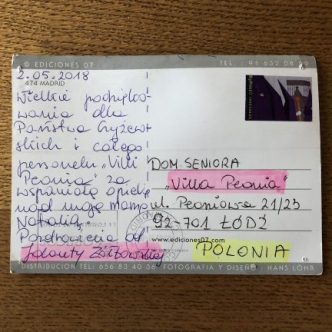 © EDICIONES 07
474 MADRID
2.05.2018
Wielkie podzięko-
wania dla
Państwa Gryżew-
skich i całego
personelu „Villi
Peonia" za
wspaniałą opiekę
nad moją mamą
Natalią.
Pozdrowienia od
Jolanty
DOM SENIORA
„Villa Peonia"
ul. Peoniowa 21/23
92-701 ŁÓDŹ
www.ediciones07.com
POLONIA
DISTRIBUCION TEL: 656 83 40 36 FOTOGRAFIA Y DISEÑO HANS LÖHR